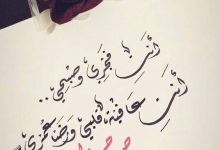 أنتِ فجري وصبحي ..
أنتِ عافية قلبي وضنا عمري